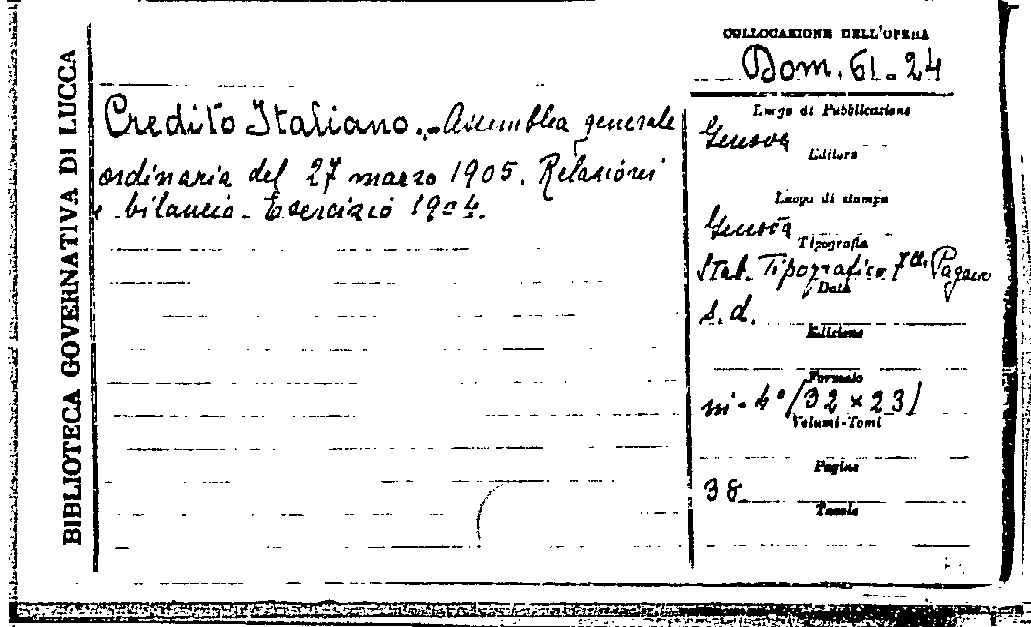 BIBLIOTECA GOVERNATIVA DI LUCCA
COLLOCAZIONE DELL'OPERA
Dom. 61.24
Credito Italiano. - Assemblea generale
ordinaria del 27 marzo 1905. Relazioni
e bilancio. Esercizio 1904.
Luogo di Pubblicazione
Genova
Editore
Luogo di stampa
Genova
Tipografia
Stab. Tipografico Flli Pagano
Data
s. d.
Edizione
Formato
in-4° (32 x 23)
Volumi-Tomi
Pagine
38
Tavole